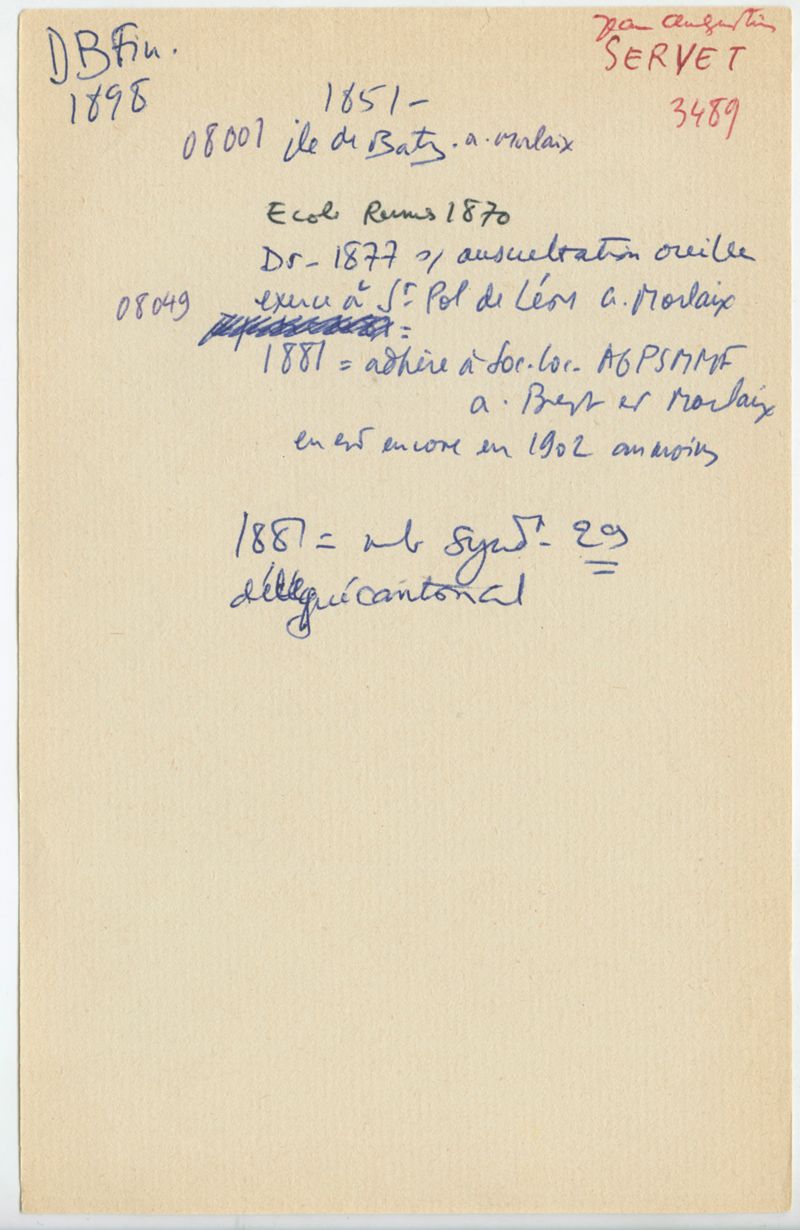 DB Fin.
1898
Jean Augustin
SERVET
3489
1851 -
08001 île de Batz. a. Morlaix
Ecole Rennes 1870
Dr - 1877 s/ auscultation oreille
08049 exerce à St Pol de Léon a. Morlaix
1881 = adhère à Soc. loc. AGPSMMF
a. Brest et Morlaix
en est encore en 1902 au moins
1881 = mb Synd. 29
délégué cantonal